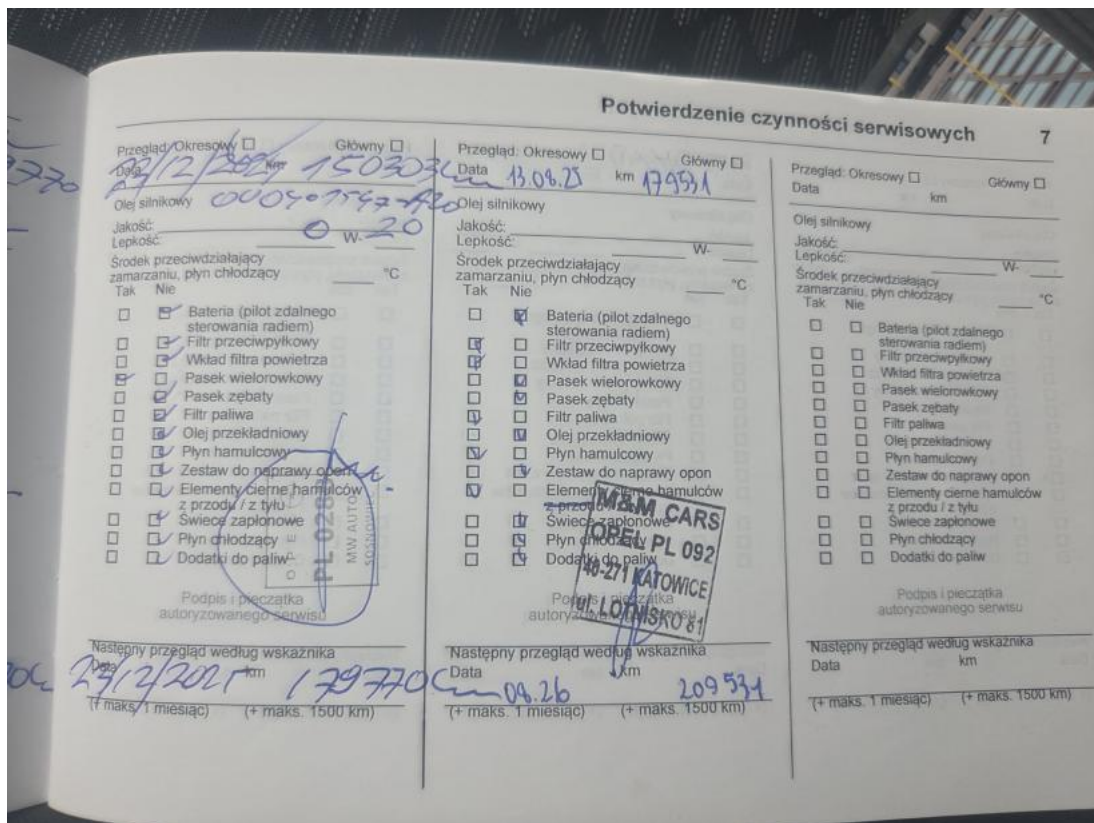 Potwierdzenie czynności serwisowych 7
Przegląd: Okresowy Główny
Data km 150303 km
Olej silnikowy
Jakość:
Lepkość: 0 W- 20
Środek przeciwdziałający
zamarzaniu, płyn chłodzący °C
Tak Nie
Bateria (pilot zdalnego
sterowania radiem)
Filtr przeciwpyłkowy
Wkład filtra powietrza
Pasek wielorowkowy
Pasek zębaty
Filtr paliwa
Olej przekładniowy
Płyn hamulcowy
Zestaw do naprawy opon
Elementy cierne hamulców
z przodu / z tyłu
Świece zapłonowe
Płyn chłodzący
Dodatki do paliw
OPEL
MW AUTO
SOSNOWIEC
Podpis i pieczątka
autoryzowanego serwisu
Następny przegląd według wskaźnika
Data km
23/12/2025 179770 km
(+ maks. 1 miesiąc) (+ maks. 1500 km)
Przegląd: Okresowy Główny
Data 13.08.25 km 179531
Olej silnikowy
Jakość:
Lepkość: W-
Środek przeciwdziałający
zamarzaniu, płyn chłodzący °C
Tak Nie
Bateria (pilot zdalnego
sterowania radiem)
Filtr przeciwpyłkowy
Wkład filtra powietrza
Pasek wielorowkowy
Pasek zębaty
Filtr paliwa
Olej przekładniowy
Płyn hamulcowy
Zestaw do naprawy opon
Elementy cierne hamulców
z przodu
Świece zapłonowe
Płyn chłodzący
Dodatki do paliw
M&M CARS
OPEL PL 092
40-271 KATOWICE
ul. LOTNISKO 81
Podpis i pieczątka
autoryzowanego serwisu
Następny przegląd według wskaźnika
Data km
08.26 209531
(+ maks. 1 miesiąc) (+ maks. 1500 km)
Przegląd: Okresowy Główny
Data km
Olej silnikowy
Jakość:
Lepkość: W-
Środek przeciwdziałający
zamarzaniu, płyn chłodzący °C
Tak Nie
Bateria (pilot zdalnego
sterowania radiem)
Filtr przeciwpyłkowy
Wkład filtra powietrza
Pasek wielorowkowy
Pasek zębaty
Filtr paliwa
Olej przekładniowy
Płyn hamulcowy
Zestaw do naprawy opon
Elementy cierne hamulców
z przodu / z tyłu
Świece zapłonowe
Płyn chłodzący
Dodatki do paliw
Podpis i pieczątka
autoryzowanego serwisu
Następny przegląd według wskaźnika
Data km
(+ maks. 1 miesiąc) (+ maks. 1500 km)